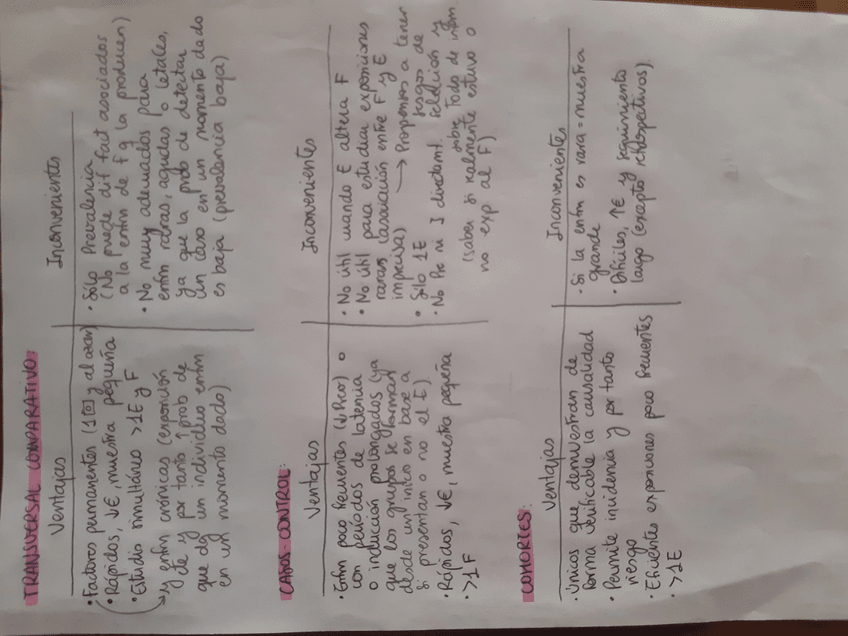 TRANSVERSAL COMPARATIVO:
Ventajas
• Factores permanentes (y al azar)
• Rápidos, ↓€, muestra pequeña
• Estudio simultáneo >1E y F
y enfm crónicas (exposición
y por tanto ↑ prob de
que dé un individuo enfm
en un momento dado).
Inconvenientes
• Sólo Prevalencia
(No puede dif fact asociados
a la enfm de f q la producen)
• No muy adecuados para
enfm raras, agudas o letales,
ya que la prob de detectar
un caso en un momento dado
es baja (prevalencia baja)
CASOS-CONTROL:
Ventajas
• Enfm poco frecuentes (↓Prev) o
con períodos de latencia
o inducción prolongados (ya
que los grupos se forman
desde un inicio en base a
si presentan o no el E)
• Rápidos, ↓€, muestra pequeña
• >1F
Inconvenientes
• No útil cuando E altera F
• No útil para estudiar exposiciones
raras (asociación entre F y E
imprecisa) → Propensos a tener
sesgos de
selección y
sobre todo de inform
• Sólo 1E
• No Pre ni I directamt.
(saber si realmente estuvo o
no exp al F)
COHORTES:
Ventajas
• Únicos que demuestran de
forma verificable la causalidad
• Permite incidencia y por tanto
riesgo
• Eficientes exposiciones poco frecuentes
• >1E
Inconvenientes
• Si la enfm es rara = muestra
grande
• Difíciles, ↑€ y seguimiento
largo (excepto retrospectivos).